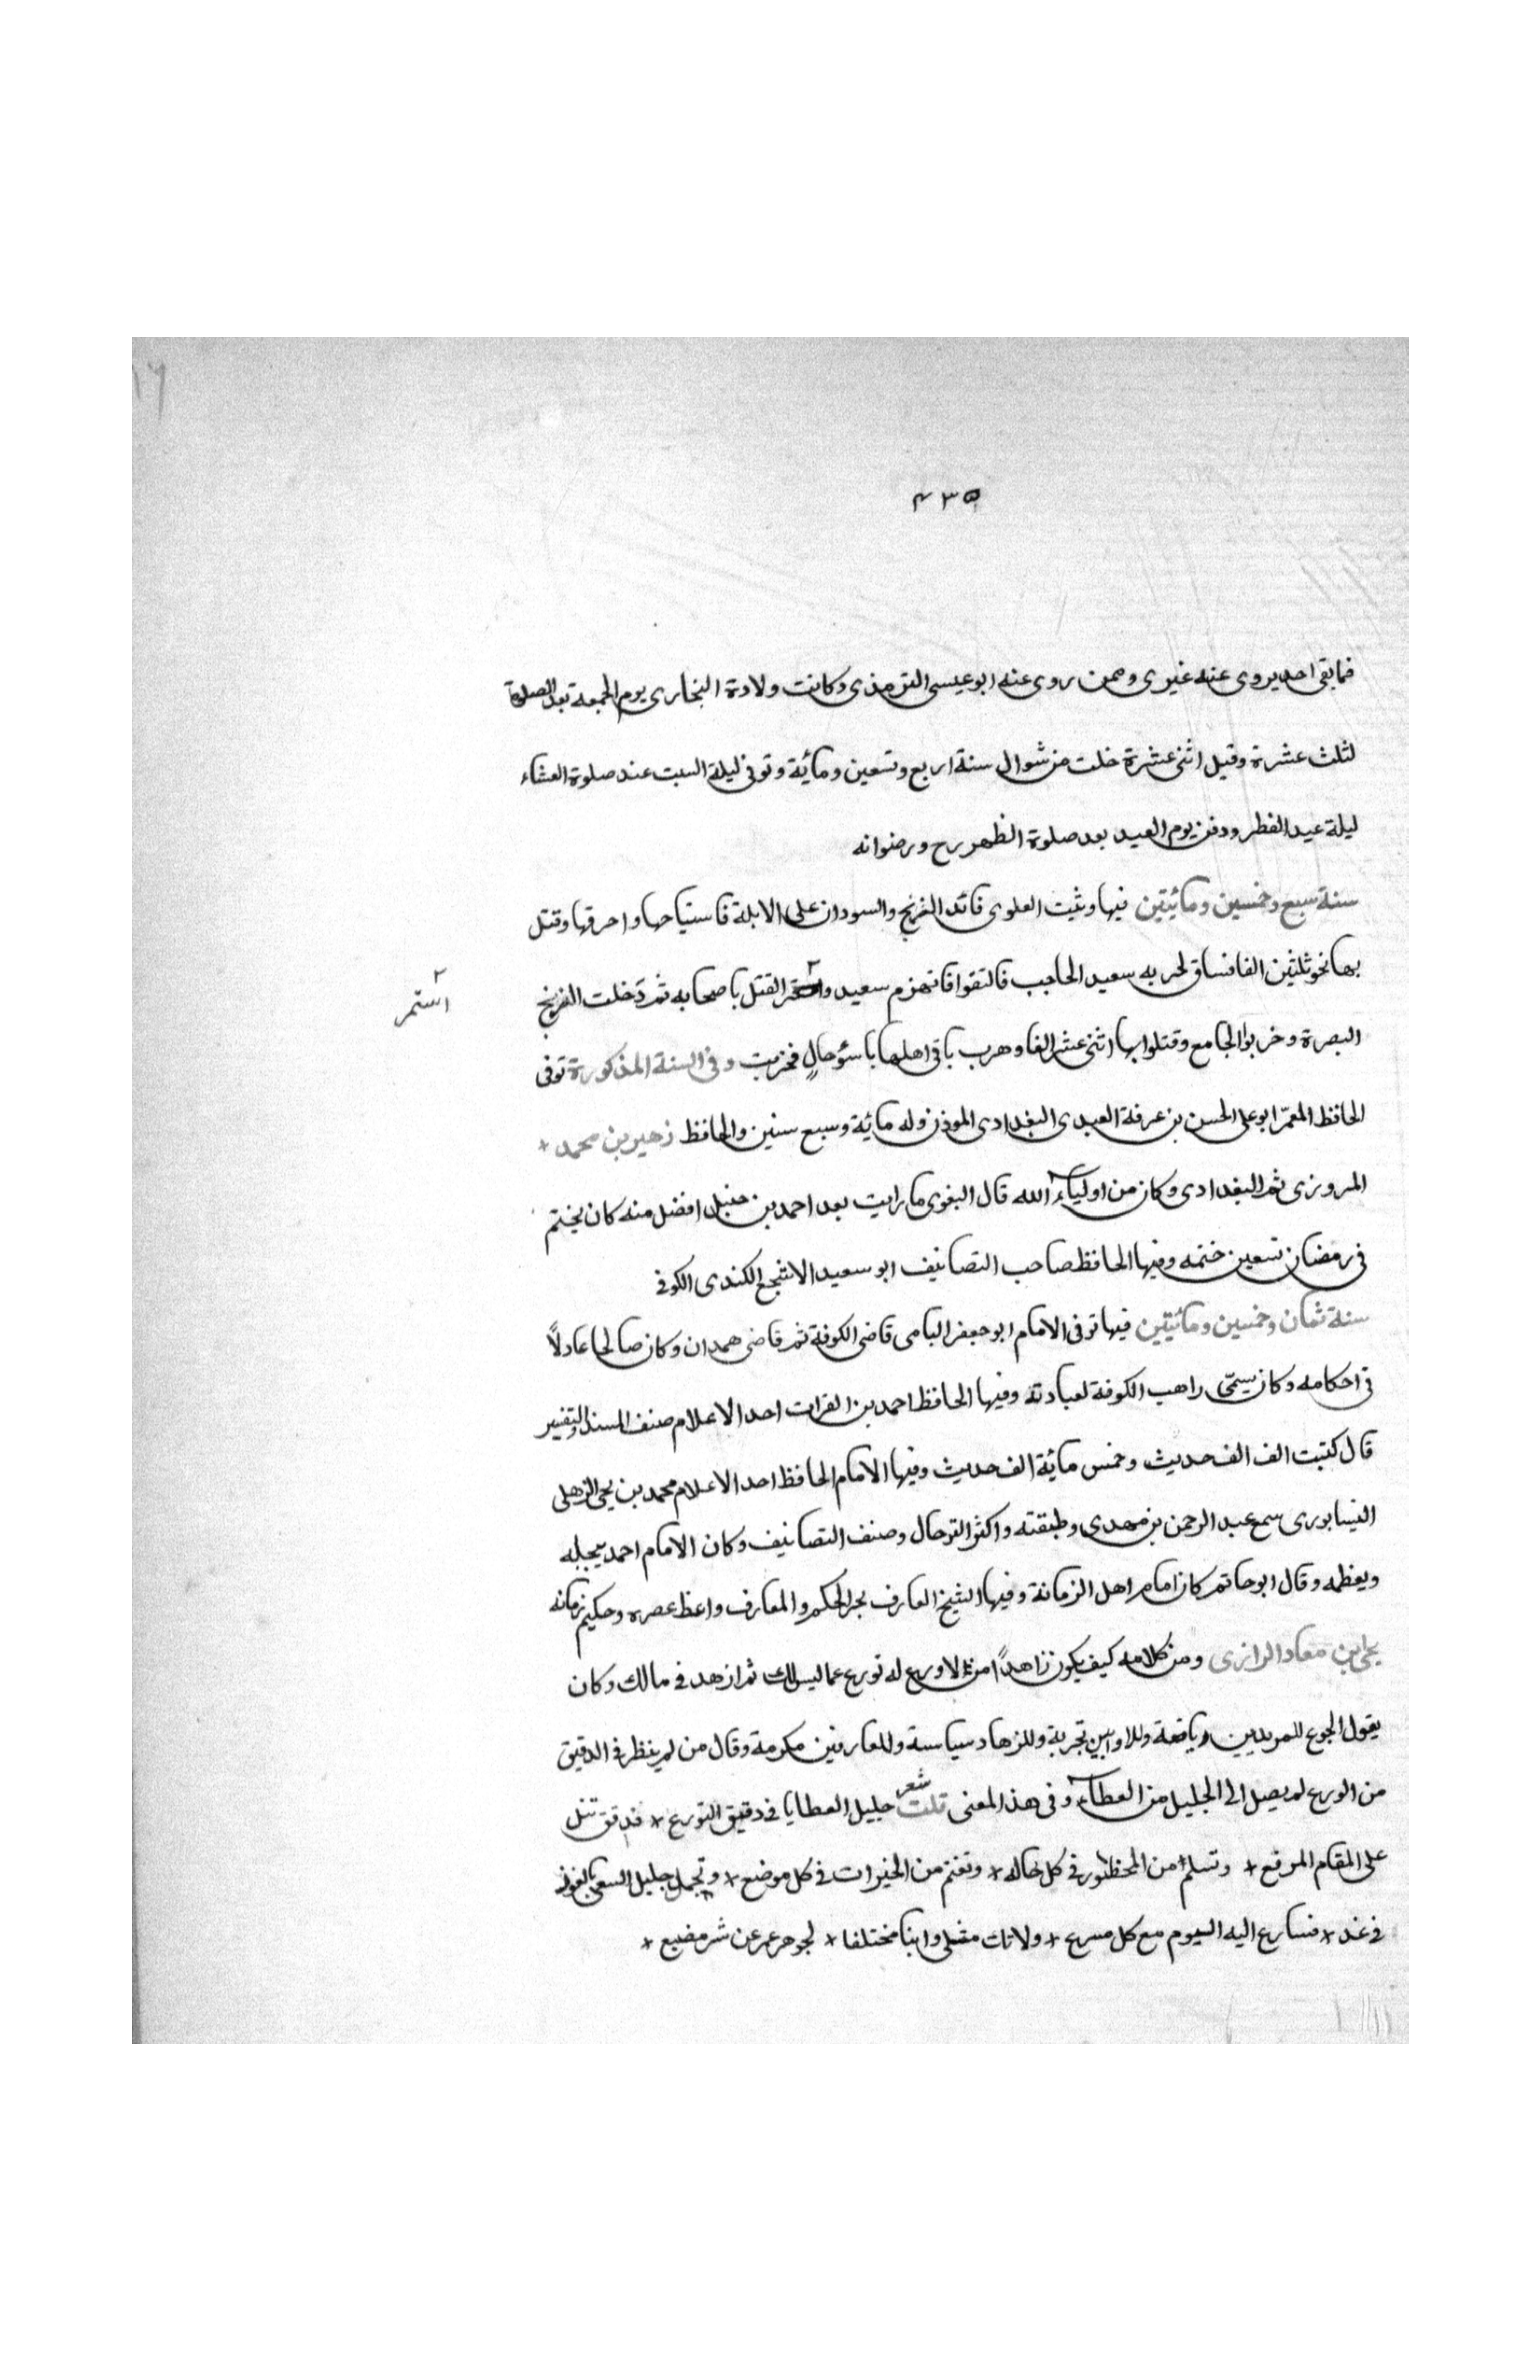 ٤٣٥
فمابقى احد يروى عنه غيرى وممن روى عنه ابو عيسى الترمذى وكانت ولادة البخارى يوم الجمعة بعد الصلوة
لثلث عشرة وقيل اثنى عشرة خلت من شوال سنة اربع وتسعين ومائة وتوفى ليلة السبت عند صلوة العشاء
ليلة عيد الفطر ودفن يوم العيد بعد صلوة الظهر رح ورضوانه
سنة سبع وخمسين ومائيتين فيها وثبت العلوى قائد الزنج والسودان على الابلة فاستباحها واحرقها وقتل
بها نحو ثلثين الفا فساق لحربه سعيد الحاجب فالتقوا فانهزم سعيد القتل باصحابه ثم دخلت الزنج
استمر
البصرة وخربوا الجامع وقتلوا بها اثنى عشر الفا وهرب باقى اهلها باسؤ حالٍ فخربت وفى السنة المذكورة توفى
الحافظ المعمّر ابو على الحسن بن عرفة العبدى البغدادى الموذن وله مائة وسبع سنين والحافظ زهير بن محمد +
المروزى ثم البغدادى وكان من اولياء الله قال البغوى ما رايت بعد احمد بن حنبل افضل منه كان يختم
فى رمضان تسعين ختمه وفيها الحافظ صاحب التصانيف ابو سعيد الاشجع الكندى الكوفى
سنة ثمان وخمسين ومائيتين فيها توفى الامام ابو جعفر اليامى قاضى الكوفة ثم قاضى همدان وكان صالحا عادلاً
فى احكامه وكان يسمّى راهب الكوفة لعبادته وفيها الحافظ احمد بن الفرات احد الاعلام صنف المسند والتفسير
قال كتبت الف الف حديث وخمس مائة الف حديث وفيها الامام الحافظ احد الاعلام محمد بن يحى الزهلى
النيسابورى سمع عبد الرحمن بن مهدى وطبقته واكثر الترحال وصنف التصانيف وكان الامام احمد يجله
ويعظمه وقال ابو حاتم كان امام اهل الزمانة وفيها الشيخ العارف بحر الحكم والمعارف واعظ عصره وحكيم زمانه
يحى ابن معاد الرازى ومن كلامه كيف يكون زاهداً من لا ورع له تورع عما ليس لك ثم ازهد فى مالك وكان
يقول الجوع للمريدين رياضة وللاوابين تجربة وللزهاد سياسة وللعارفين مكرمة وقال من لم ينظر فى الدقيق
من الورع لم يصل الى الجليل من العطاء وفى هذا المعنى قلت شعر جليل العطايا فى دقيق التورع + فدقق تنل
على المقام المرفع + وتسلم من المحظور فى كل حاله + وتغنم من الخيرات فى كل موضع + وتجمل جليل السعى بالفوز
فى غد + فسارع اليه اليوم مع كل مسرع + ولا تك + لجوهر عمر عن شر مضيع +